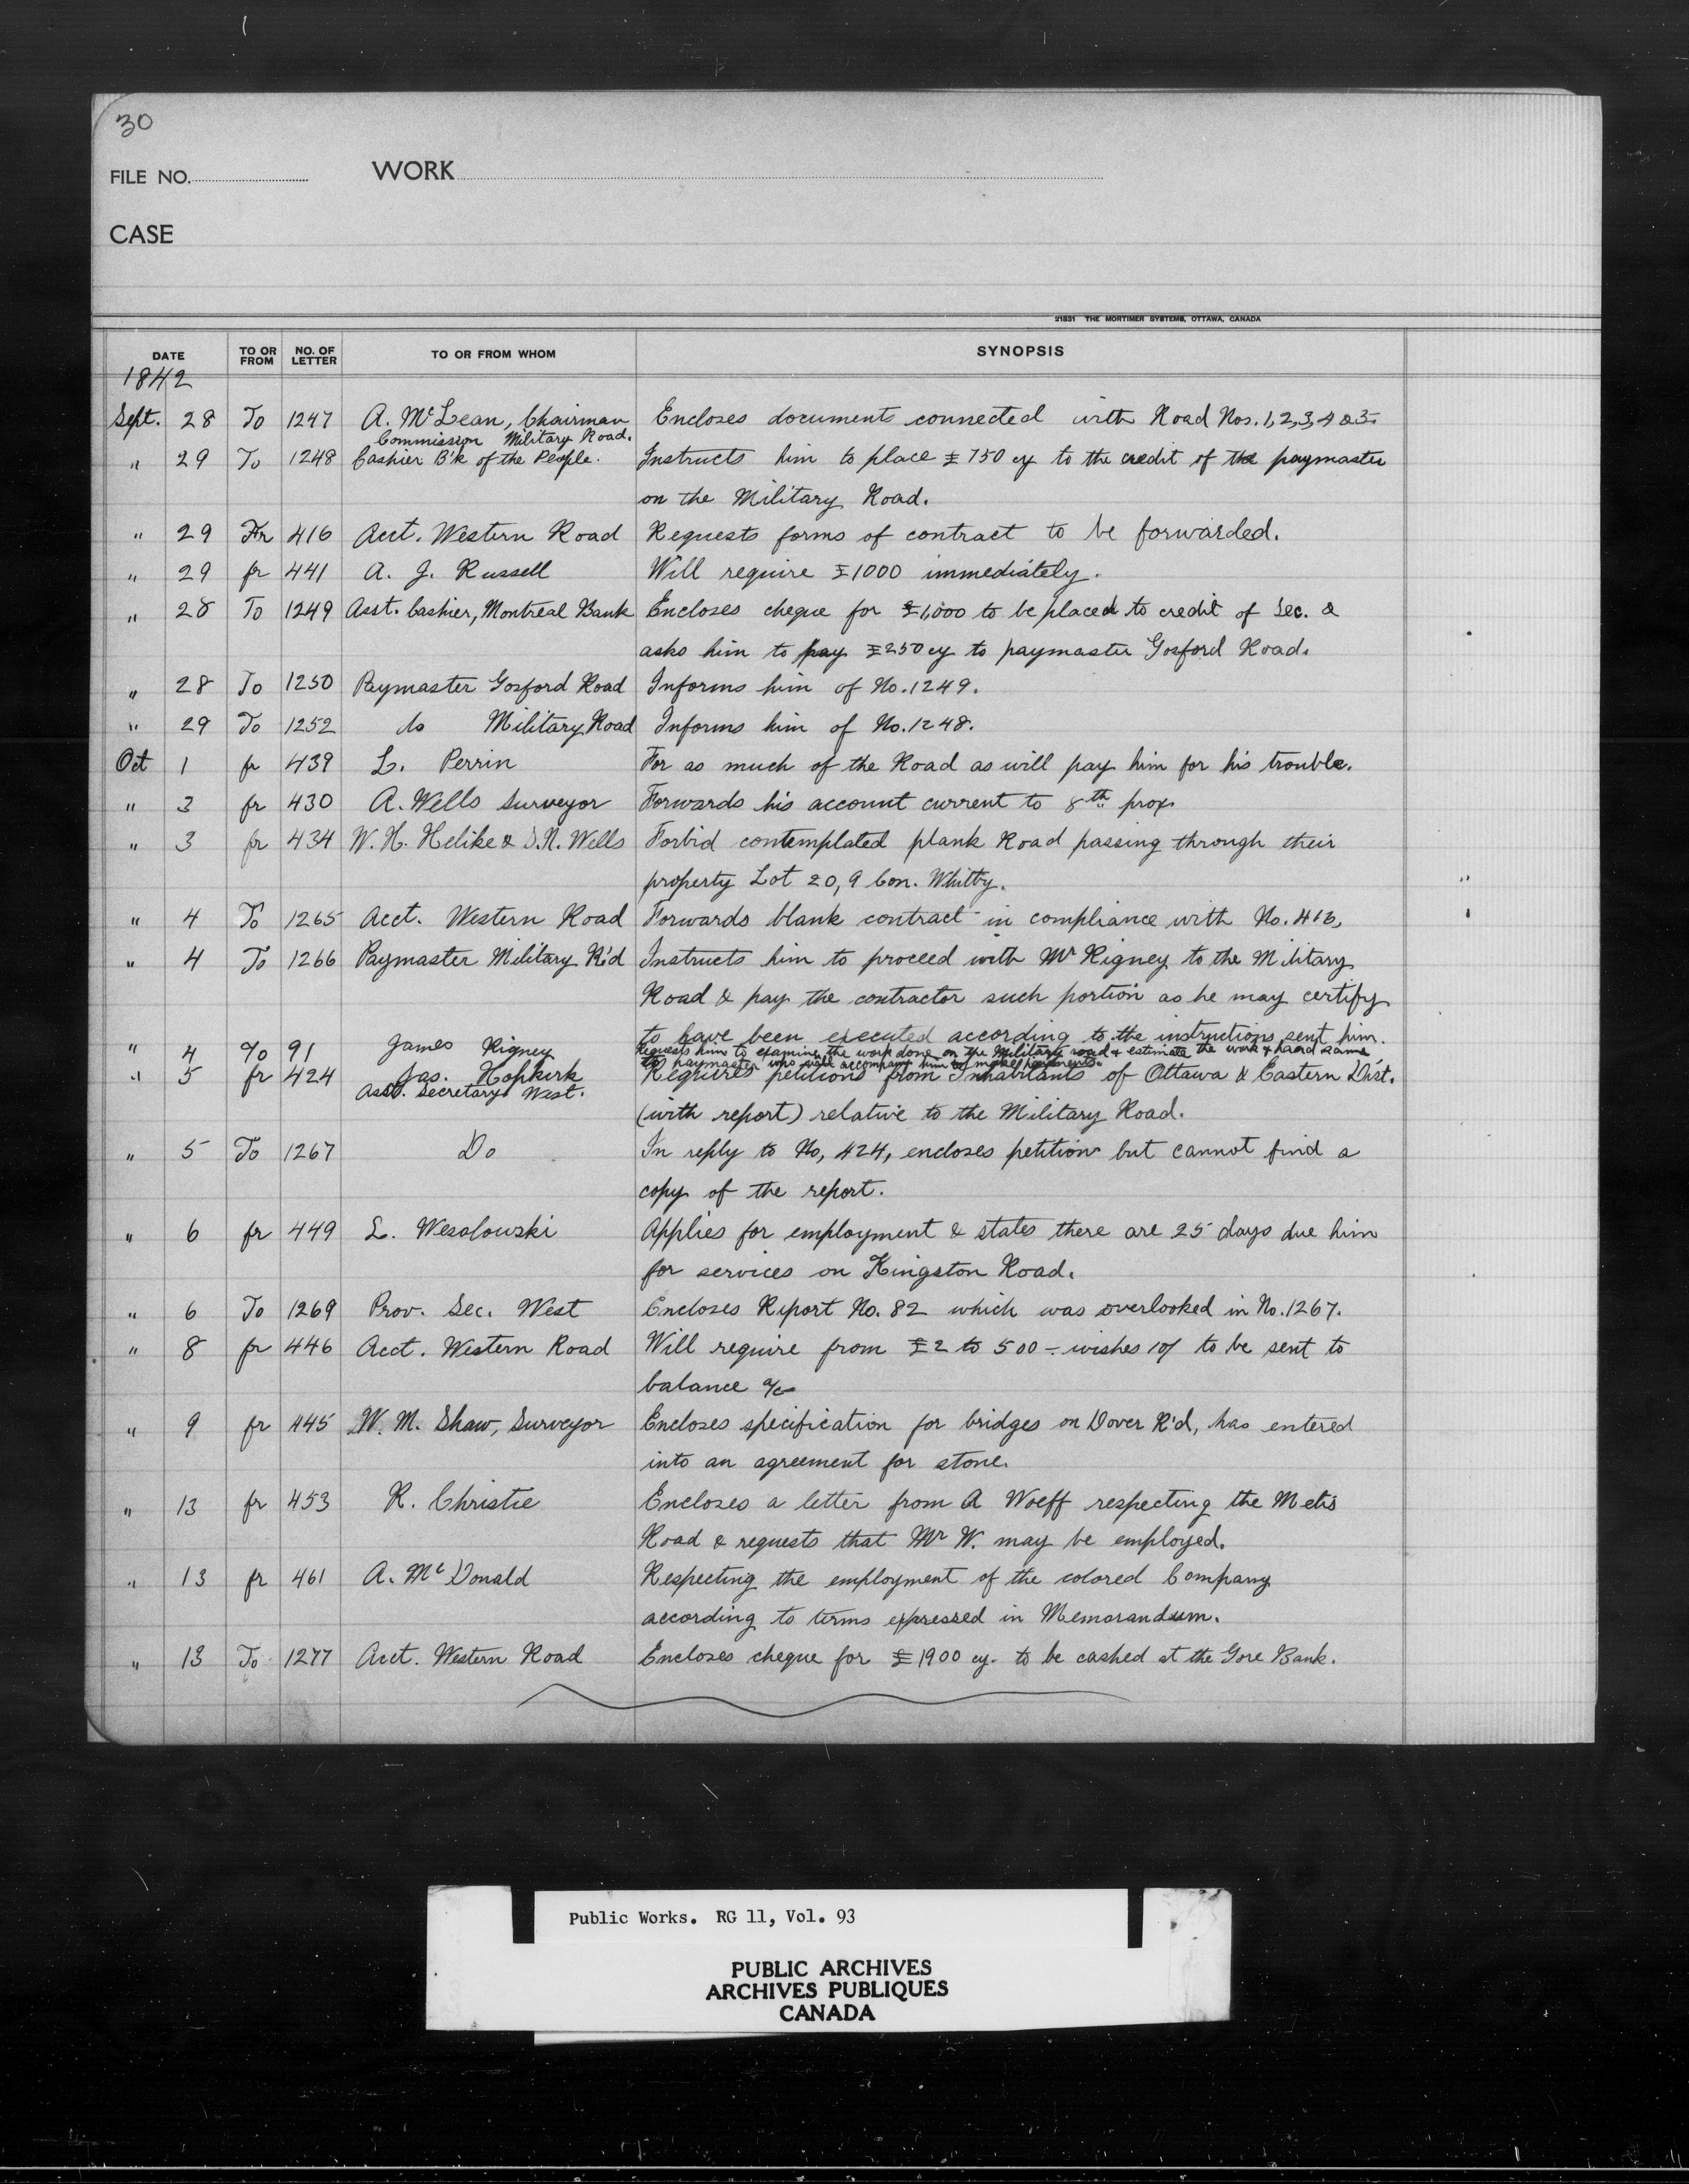 30
FILE NO. WORK
CASE
21831 THE MORTIMER SYSTEMS, OTTAWA, CANADA
DATE TO OR FROM NO. OF LETTER TO OR FROM WHOM SYNOPSIS
1842
Sept. 28 To 1247 A. McLean, Chairman Encloses documents connected with Road Nos. 1, 2, 3, 4 & 5.
Commission Military Road.
" 29 To 1248 Cashier B'k of the People. Instructs him to place £750 cy to the credit of the paymaster
on the Military Road.
" 29 Fr 416 Acct. Western Road Requests forms of contract to be forwarded.
" 29 fr 441 A. J. Russell Will require £1000 immediately.
" 28 To 1249 Asst. Cashier, Montreal Bank Encloses cheque for £1,000 to be placed to credit of Sec. &
asks him to pay £250 cy to paymaster Gosford Road.
" 28 To 1250 Paymaster Gosford Road Informs him of No. 1249.
" 29 To 1252 do Military Road Informs him of No. 1248.
Oct 1 fr 439 L. Perrin For as much of the Road as will pay him for his trouble.
" 3 fr 430 A. Wells Surveyor Forwards his account current to 8th prox.
" 3 fr 434 W. H. Helike & S. N. Wells Forbid contemplated plank Road passing through their
property Lot 20, 9 Con. Whitby.
" 4 To 1265 Acct. Western Road Forwards blank contract in compliance with No. 416,
" 4 To 1266 Paymaster Military R'd Instructs him to proceed with Mr Rigney to the Military
Road & pay the contractor such portion as he may certify
to have been executed according to the instructions sent him.
" 4 To 91 James Rigney Requests him to examine the work done on the Military road & estimate the work & hand same
to paymaster who will accompany him to make payments.
" 5 fr 424 Jas. Hopkirk Requires petitions from Inhabitants of Ottawa & Eastern Dist.
Asst. Secretary West. (with report) relative to the Military Road.
" 5 To 1267 Do In reply to No, 424, encloses petition but cannot find a
copy of the report.
" 6 fr 449 L. Wesolowski Applies for employment & states there are 25 days due him
for services on Kingston Road.
" 6 To 1269 Prov. Sec. West Encloses Report No. 82 which was overlooked in No. 1267.
" 8 fr 446 Acct. Western Road Will require from £2 to 500 - wishes 10/ to be sent to
balance a/c
" 9 fr 445 W. M. Shaw, Surveyor Encloses specification for bridges on Dover R'd, has entered
into an agreement for stone.
" 13 fr 453 R. Christie Encloses a letter from A Woeff respecting the Metis
Road & requests that Mr W. may be employed.
" 13 fr 461 A. McDonald Respecting the employment of the colored Company
according to terms expressed in Memorandum.
" 13 To 1277 Acct. Western Road Encloses cheque for £1900 cy. to be cashed at the Gore Bank.
Public Works. RG 11, Vol. 93
PUBLIC ARCHIVES
ARCHIVES PUBLIQUES
CANADA